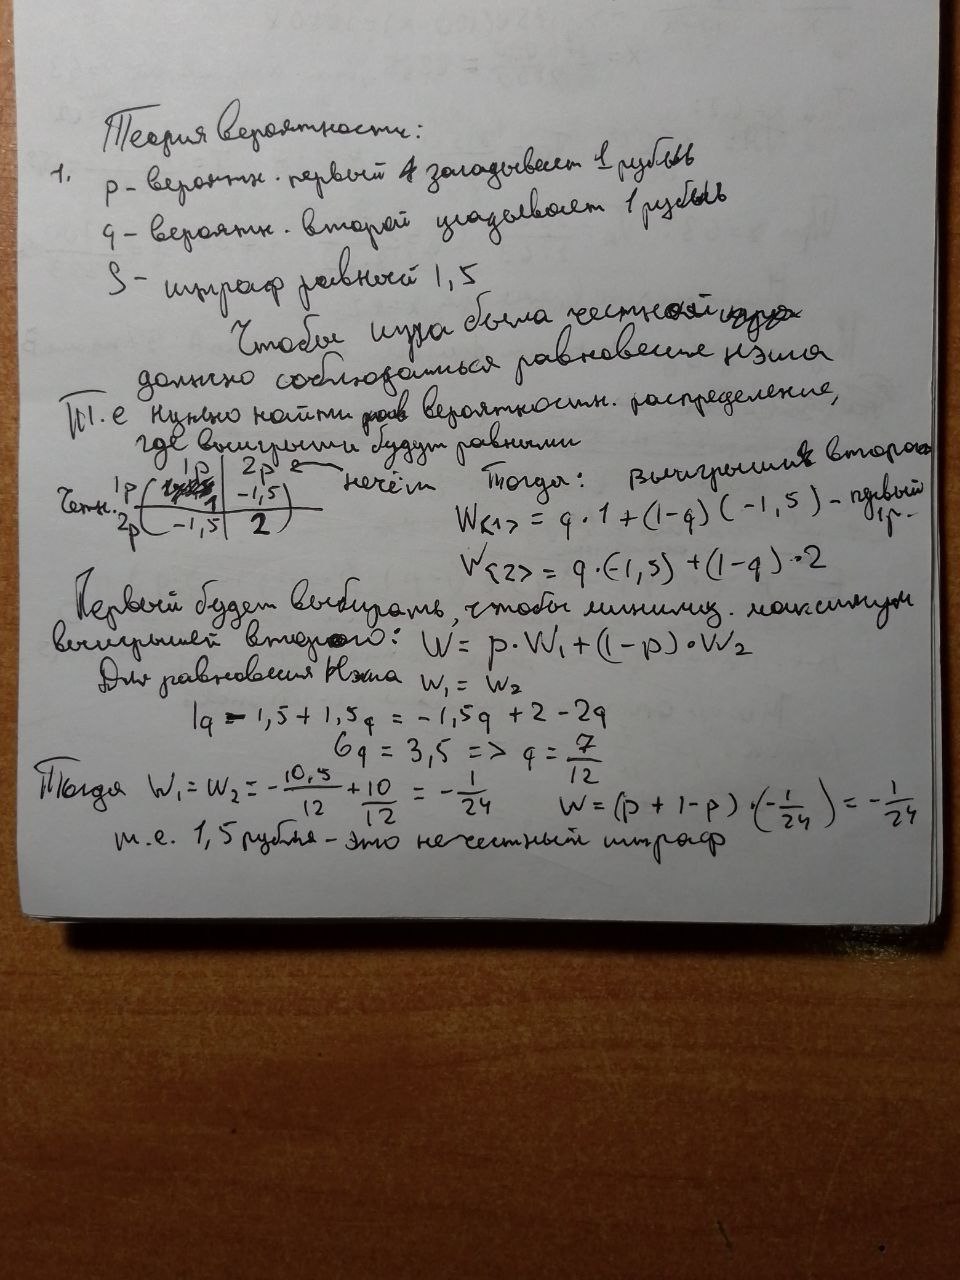 Теория вероятности:
1. p - вероятн. первый загадывает 1 рубль
q - вероятн. второй угадывает 1 рубль
S - штраф равный 1,5
Чтобы игра была честной
должно соблюдаться равновесие Нэша
Т.е нужно найти вероятностн. распределение,
где выигрыши будут равными
1р 2р нечёт Тогда: выигрыши второго
Четн. 1р 1 -1,5 W<1> = q·1+(1-q)(-1,5) - первый 1р.
2р -1,5 2 W<2> = q·(-1,5)+(1-q)·2
Первый будет выбирать, чтобы миними. максимум
выигрышей второго: W = p·W₁+(1-p)·W₂
Для равновесия Нэша W₁ = W₂
1q - 1,5 + 1,5q = -1,5q + 2 - 2q
6q = 3,5 => q = 7/12
Тогда W₁ = W₂ = -10,5/12 + 10/12 = -1/24 W = (p + 1 - p)·(-1/24) = -1/24
т.е. 1,5 рубля - это нечестный штраф